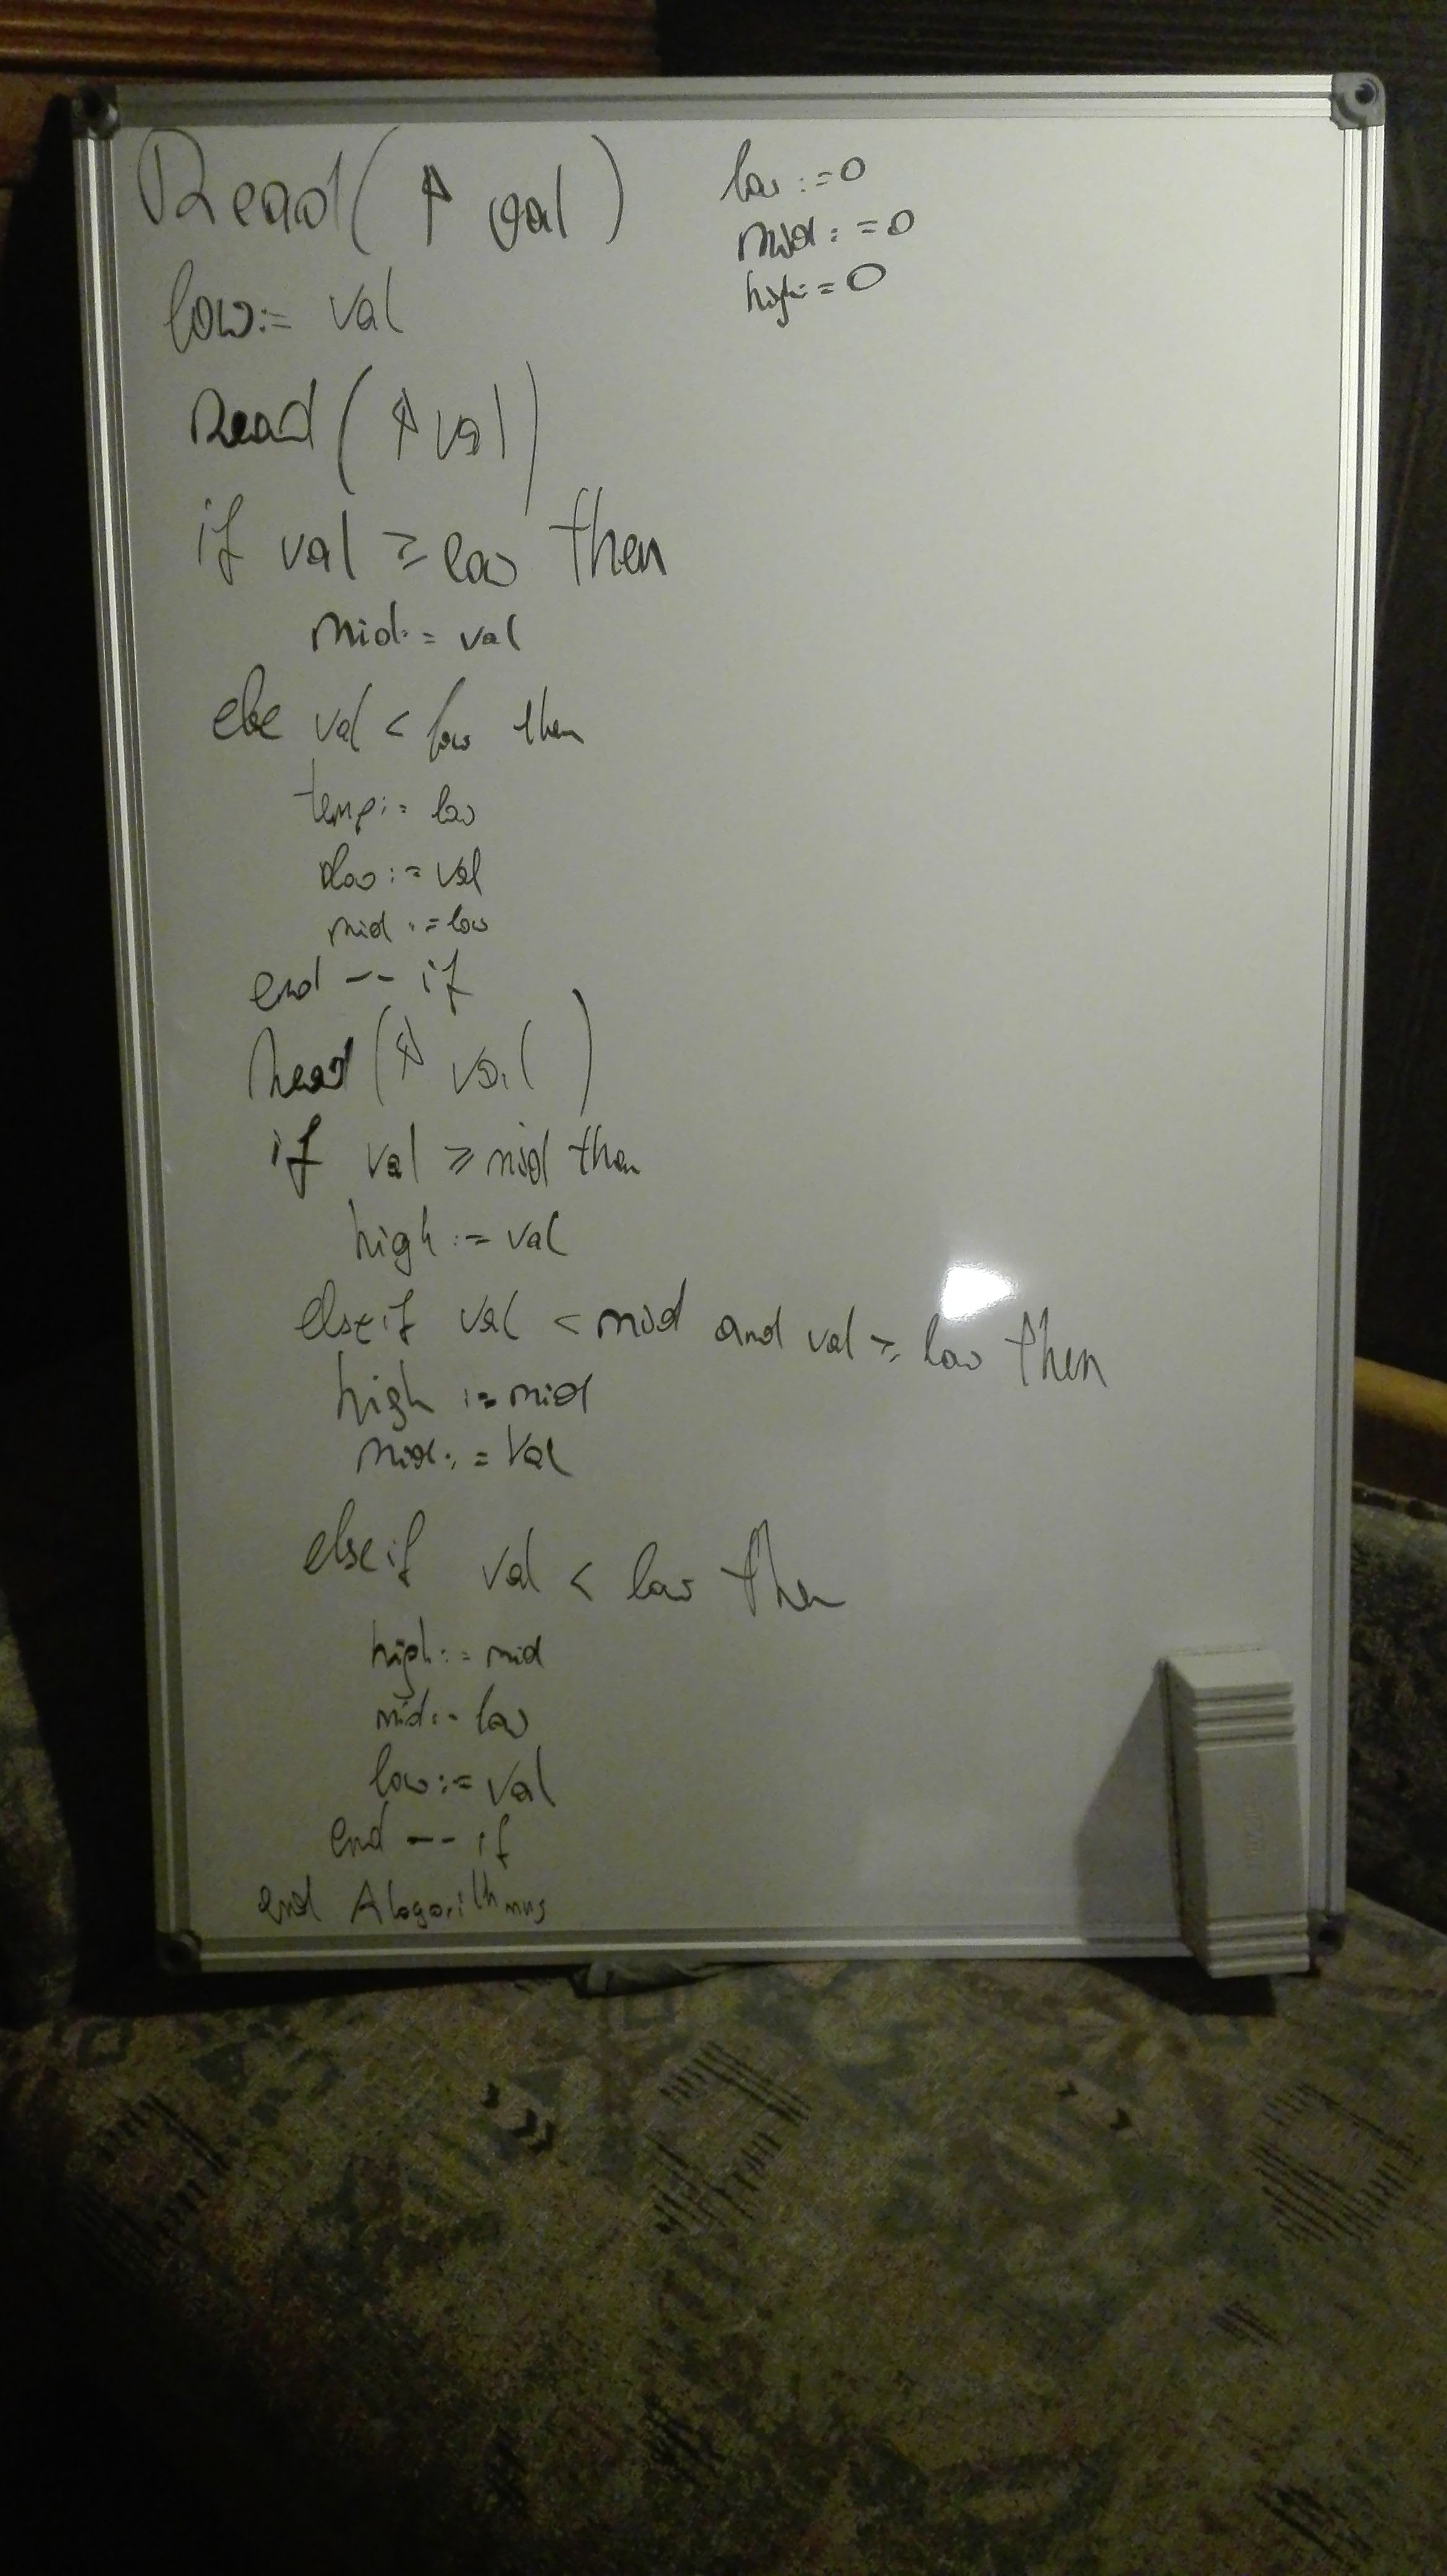 Read(↑ val)
low:= val
Read(↑ val)
if val ≥ low then
mid:= val
else val < low then
temp:= low
low := val
mid := low
end -- if
Read(↑ val)
if val ≥ mid then
high := val
elseif val < mid and val ≥ low then
high := mid
mid:= val
elseif val < low then
high:= mid
mid:= low
low:= val
end -- if
end Alogorithmus
low :=0
mid:=0
high:=0